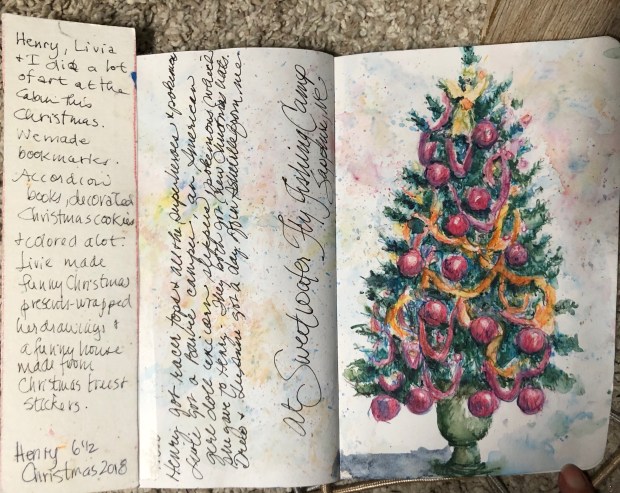 Henry, Livia
+ I did a lot
of art at the
Cabin this
Christmas.
We made
bookmarks.
Accordion
books, decorated
Christmas cookies
+ colored a lot.
Livie made
funny Christmas
presents-wrapped
her drawings +
a funny house
made from
Christmas forest
stickers.
Henry 6 1/2
Christmas 2018
Henry got racer tops + all the experiences + pokemon
got a Barbie camper, an American
girl doll unicorn sleepin
gave to She. They both got new Christmas hats.
+ got a day off in from me.
at Sweetwater Fly Fishing Camp